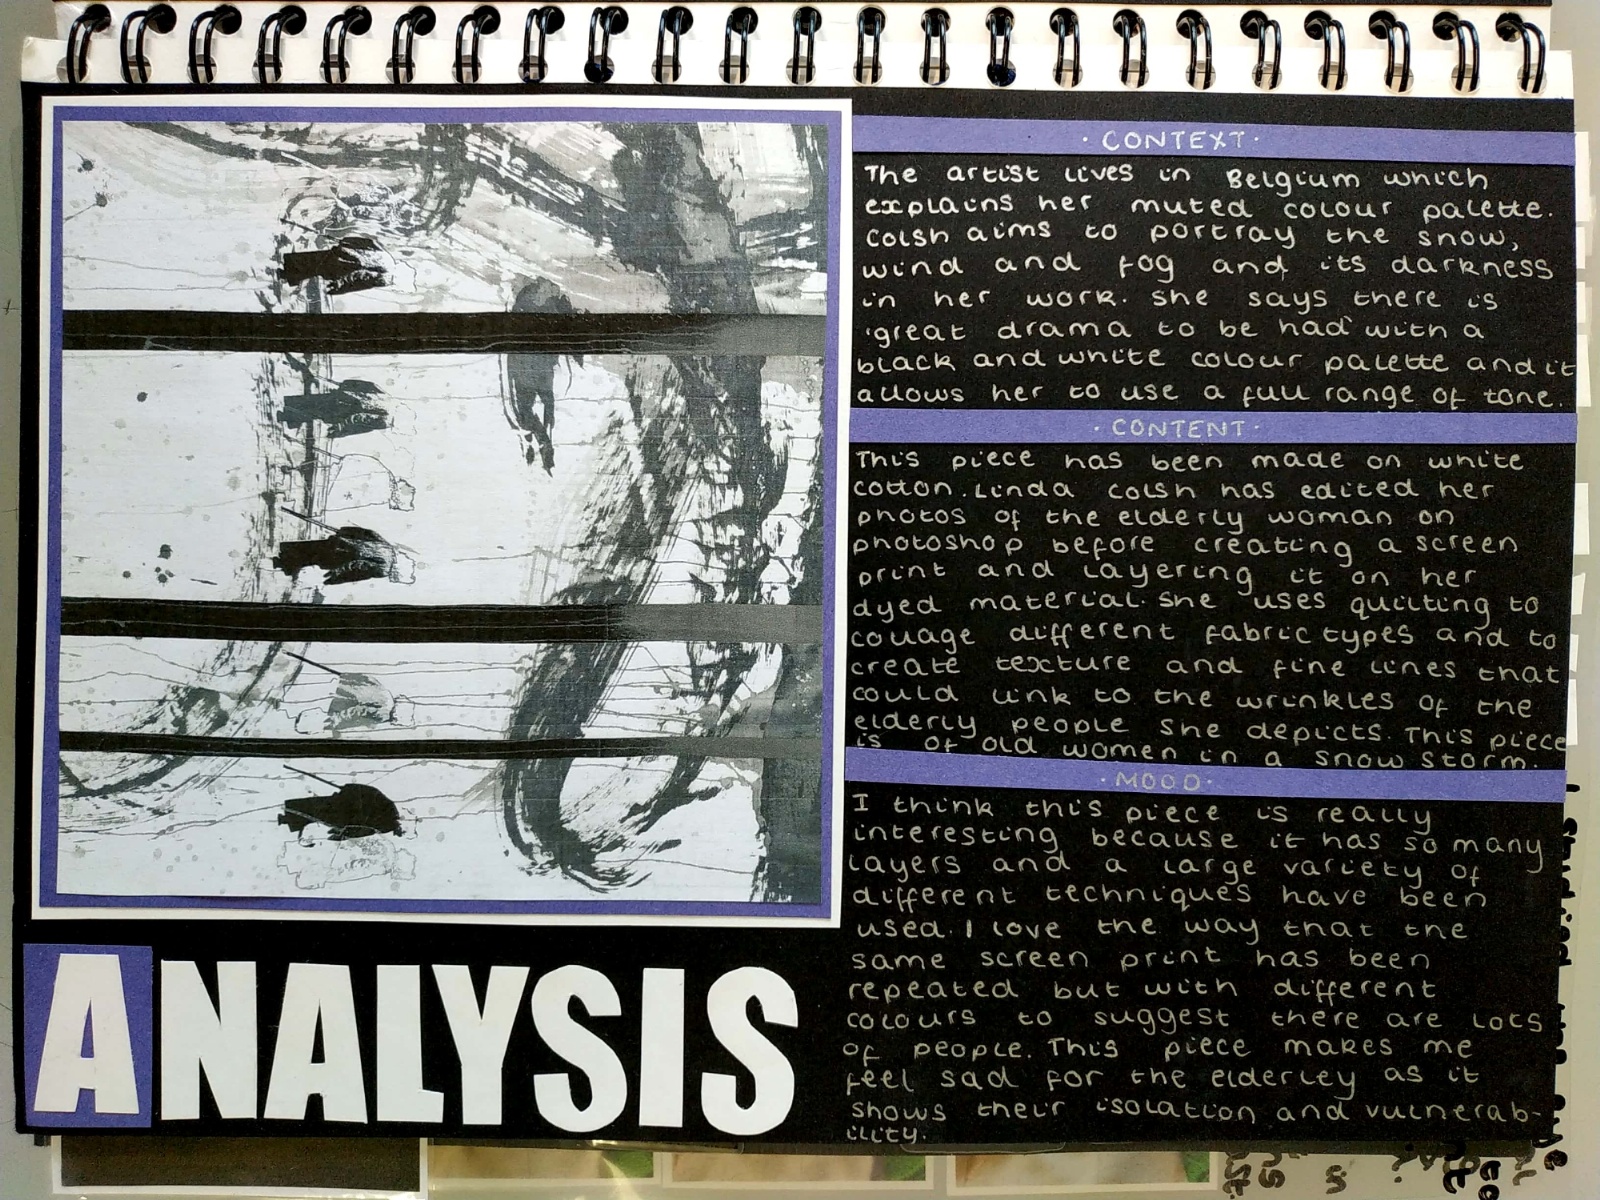 · CONTEXT ·
The artist lives in Belgium which
explains her muted colour palette.
Colsh aims to portray the snow,
wind and fog and its darkness
in her work. She says there is
'great drama to be had' with a
black and white colour palette and it
allows her to use a full range of tone.
· CONTENT ·
This piece has been made on white
cotton. Linda Colsh has edited her
photos of the elderly woman on
photoshop before creating a screen
print and layering it on her
dyed material. She uses quilting to
collage different fabric types and to
create texture and fine lines that
could link to the wrinkles of the
elderly people she depicts. This piece
is of old women in a snow storm.
· MOOD ·
I think this piece is really
interesting because it has so many
layers and a large variety of
different techniques have been
used. I love the way that the
same screen print has been
repeated but with different
colours to suggest there are lots
of people. This piece makes me
feel sad for the elderley as it
shows their isolation and vulnerab-
ility.
ANALYSIS